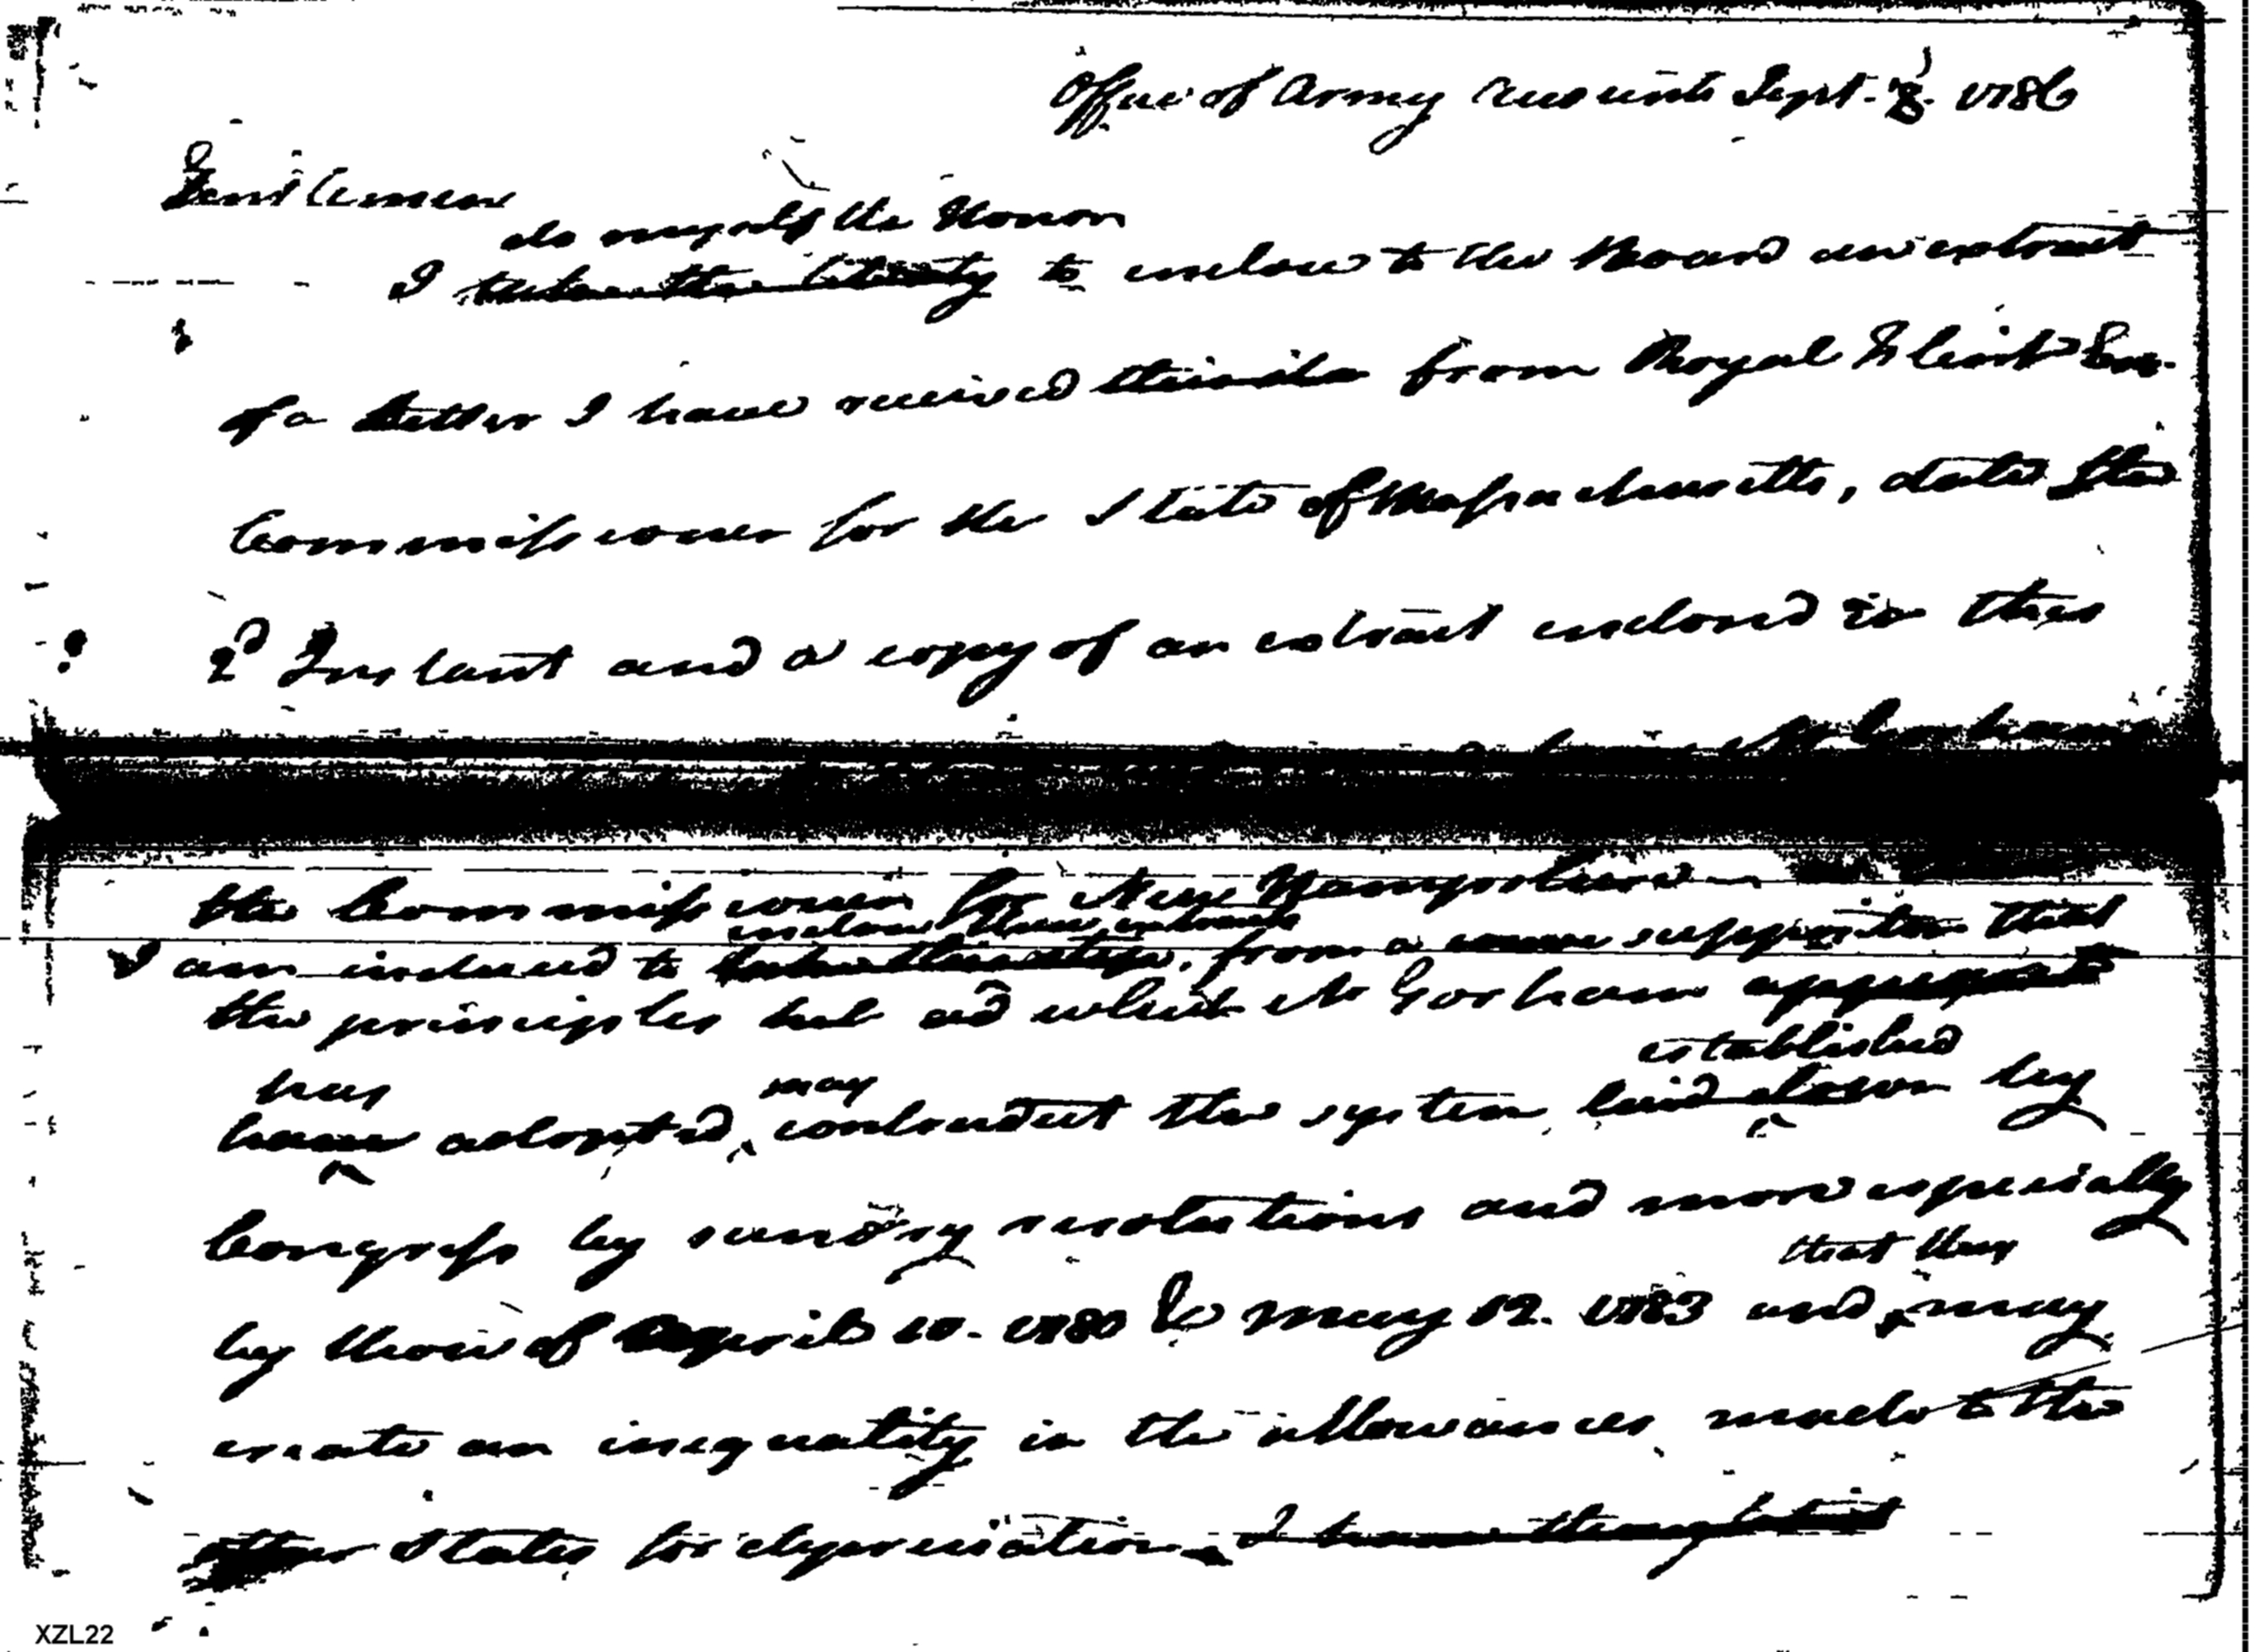 Office of Army accounts Sept. 8. 1786
Gentlemen
do myself the Honor
I take the liberty to inclose to the Board an extract
of a Letter I have received from Royal Flint Esqr.
Commissioner for the State of Massachusetts, dated the
2d Instant and a copy of an extract inclosed in this
the Commissioner for New Hampshire
inclose these extracts
I am induced to take this step, from a supposition that
the principles but ad which Mr Gorham
established
has may
have adopted, contradict the system laid down by
Congress by sundry resolutions and more especially
that they
by those of April 10. 1780 & May 12. 1783 and may
create an inequality in the allowances made to the
other States for depreciation. I have thought it
XZL22